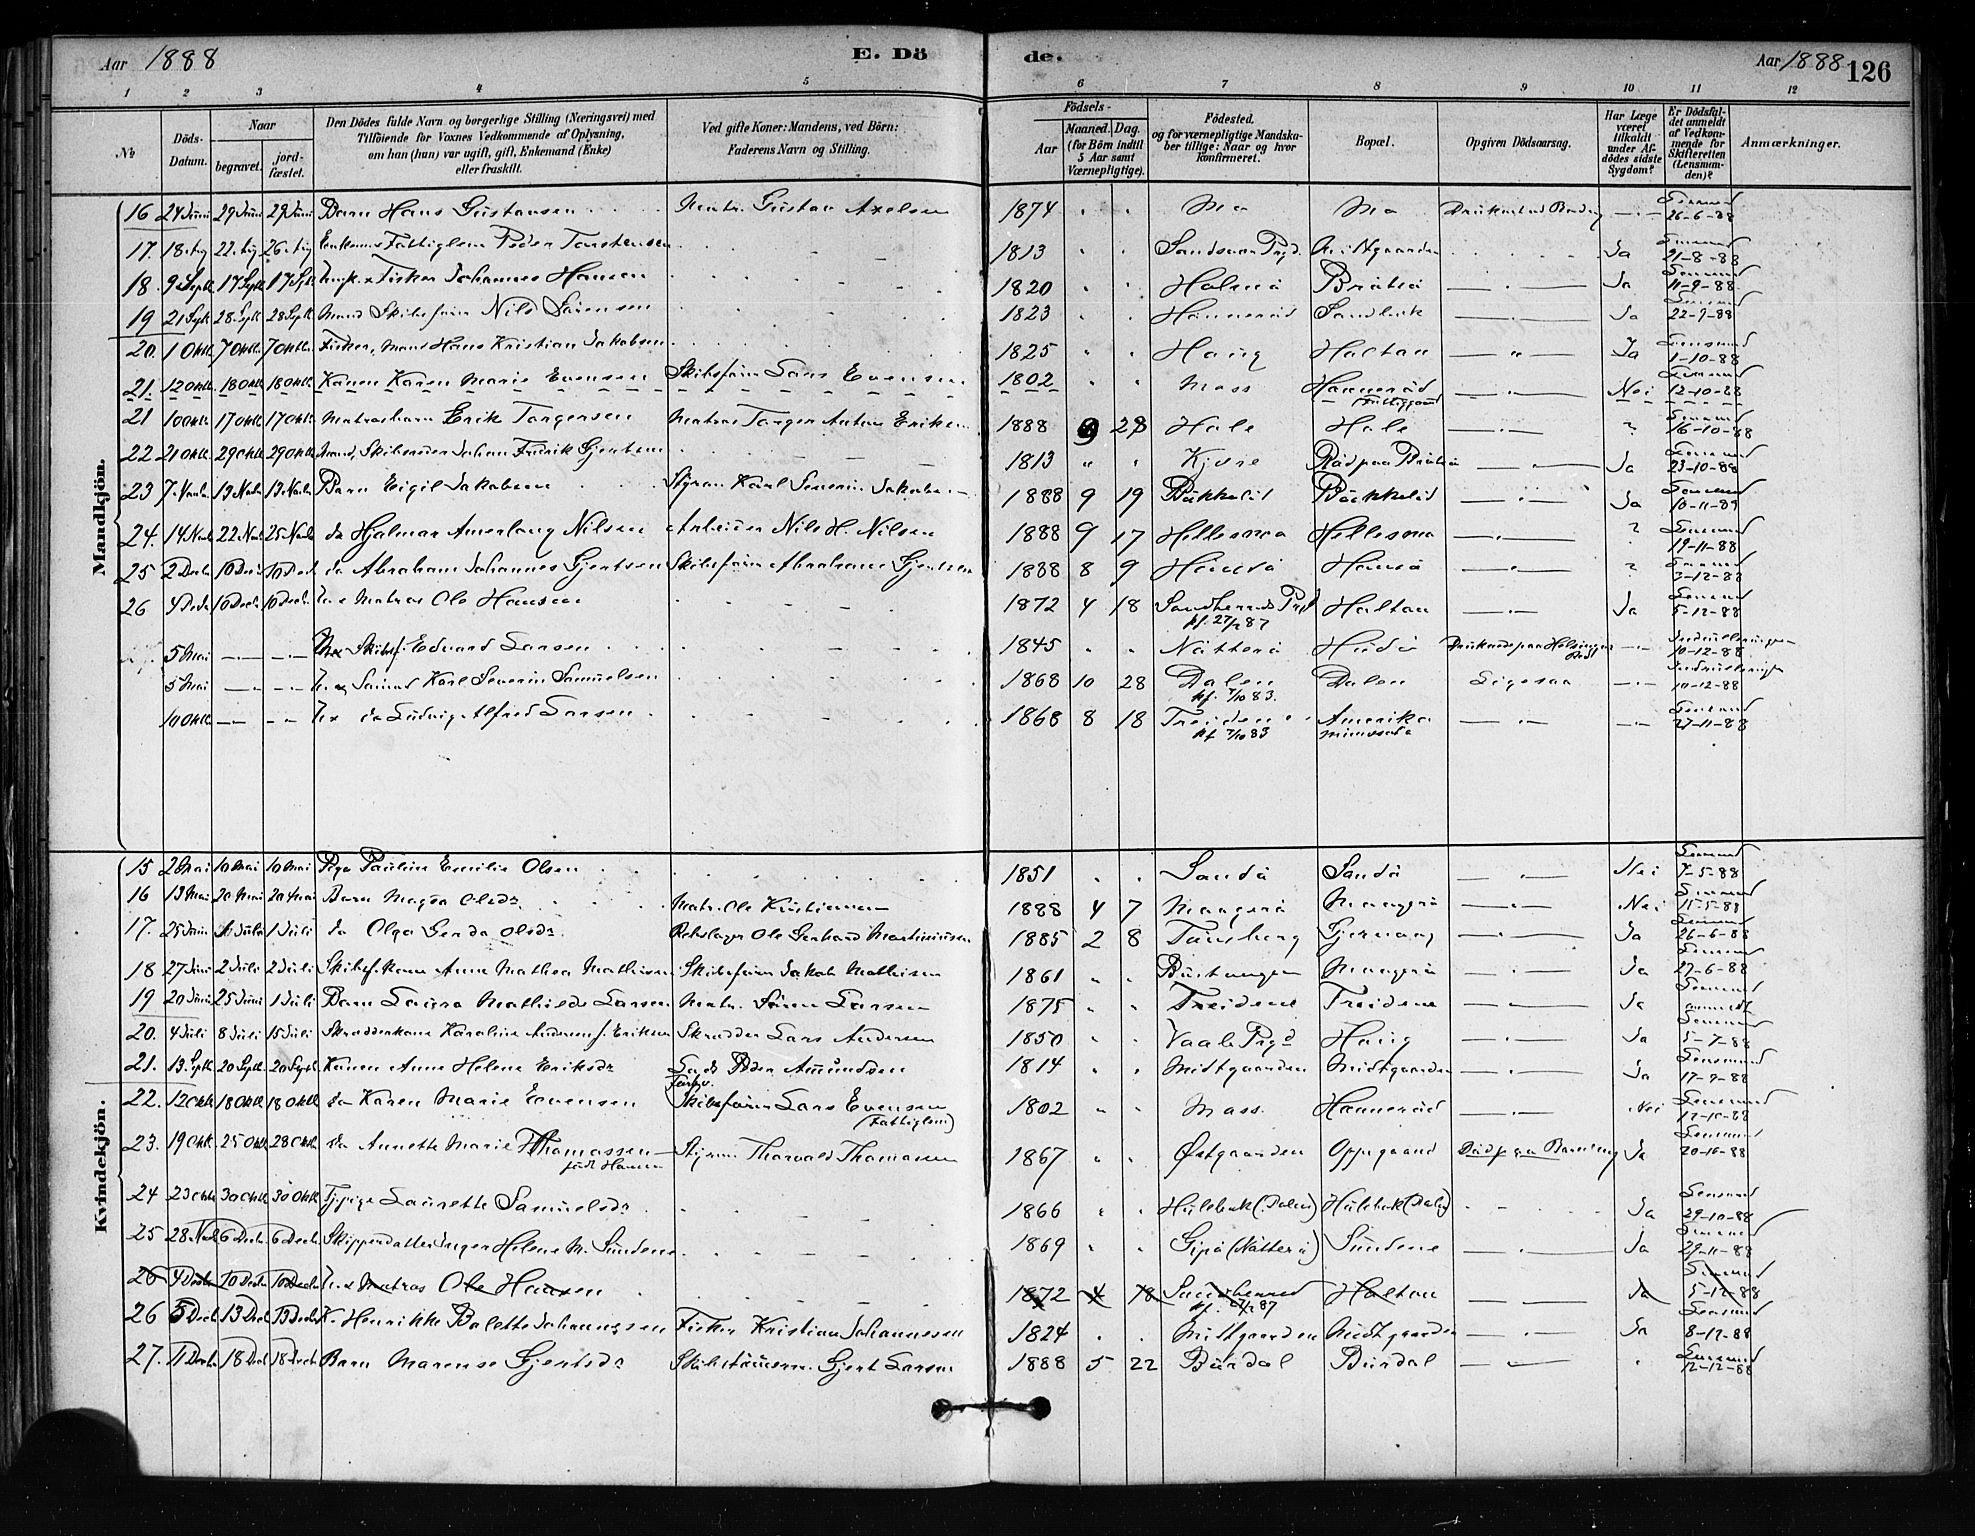 Aar 1888 E. Dö de. Aar 1888 126
1 2 3 4 5 6 7 8 9 10 11 12
No
Döds-Datum.
Naar
begravet.
jord-fæstet.
Den Dödes fulde Navn og borgerlige Stilling (Næringsvei) med
Tilföiende for Voxnes Vedkommende af Oplysning,
om han (hun) var ugift, gift, Enkemand (Enke)
eller fraskilt.
Ved gifte Koner: Mandens, ved Börn:
Faderens Navn og Stilling.
Födsels-
Aar
Maaned. Dag.
(for Börn indtil
5 Aar samt
Værnepligtige).
Födested.
og for værnepligtige Mandska-
ber tillige: Naar og hvor
konfirmeret.
Bopæl.
Opgiven Dödsaarsag.
Har Læge
været
tilkaldt
under Af-
dödes sidste
Sygdom?
Er Dödsfal-
det anmeldt
af Vedkom-
mende for
Skifteretten
(Lensman-
den)?
Anmærkninger.
Mandkjön.
16 24 Juni 29 Juni 29 Juni Barn Hans Gustavsen Matr. Gustav Axelsen 1874 " " Mo Mo 26-6-88
17. 18 Aug 22. Aug 26. Aug Fattiglem Peder Torstensen 1813 " " Prgd. Midtgaarden Ja 21-8-88
18. 9 Sept 17 Sept 17 Sept Fisker Johannes Hansen 1820 " " Holmö Bråtö Ja 11-9-88
19 21 Sept 28 Sept 28 Sept Mand Skibsförer Nils Sörensen 1823 Hanneröd Sandbuk Ja 22-9-88
20. 1 Oktb. 7 Oktb. 7 Oktb. Fisker, Mand Hans Kristian Jakobsen 1825 " " Haug Holtan Ja 1-10-88
21. 12 Oktb. 18 Oktb. 18 Oktb. Konen Karen Marie Evensen Skibsförer Lars Evensen 1802 " " Moss Hanneröd Nei 12-10-88
21 10 Oktb. 17 Oktb. 17 Oktb. Matrosbarn Erik Torgersen Matros Torger Anton Eriksen 1888 9 28 Hole Hole ? 16-10-88
22 21 Oktb. 29 Oktb. 29 Oktb. Mand, Skibsreder Johan Fredrik Gjertsen 1813 " " Kjöle Röd paa Bråtö Ja 23-10-88
23 7. Novb. 13 Novb. 13. Novb. Barn Eigil Jakobsen Styrm. Karl Severin Jakobsen 1888 9 19 Bakkelid Bakkelid Ja 10-11-88
24. 14 Novb. 22 Novb. 25 Novb. do Hjalmar Amerlang Nilsen Arbeider Nils H. Nilsen 1888 9 17 Hellesmo Hellesmo ? 19-11-88
25 2 Decb. 10 Decb. 10 Decb. do Abraham Johannes Gjertsen Skibsförer Abraham Gjertsen 1888 8 9 Hausö Hausö ? 3-12-88
26 4 Decb. 10 Decb. 10 Decb. Matros Ole Hansen 1872 4 18 Sandherreds Prgd Holtan Ja 5-12-88
kf. 27/2 87
5 Mai Skibsf. Edvard Larsen 1845 " " Nötterö 10-12-88
5 Mai Sömd Karl Severin Samuelsen 1868 10 28 Dalen Dalen Ligesaa 10-12-88
kf. 7/10 83.
10 Oktb. do Ludvig Alfred Larsen 1868 8 18 Treidene Amerika 27-11-88
kf. 7/10 83
Kvindekjön.
15 2 Mai 10 Mai 10 Mai Pige Pauline Emilie Olsen 1851 " " Sandö Sandö Nei 7-5-88
16 13 Mai 20 Mai 20 Mai Barn Magda Olsdr Matr. Ole Kristiansen 1888 4 7 Maagerö Maagerö Nei 15-5-88
17. 25 Juni 1 Juli 1 Juli do Olga Gerda Olsdr. Rebslager Ole Gerhard Martiniusen 1885 2 8 Tönsberg Gjernang Ja 26-6-88
18 27 Juni 2 Juli 2 Juli Skibsf. Kone Anne Mathea Mathisen Skibsförer Jakob Mathisen 1861 " " Bustangen Maagerö Ja 27-6-88
19 20 Juni 25 Juni 1 Juli Barn Laura Mathilde Larsen Matr. Sören Larsen 1875 " " Treidene Treidene Ja anmeldt
20. 4 Juli 8 Juli 15 Juli Skrædderkone Karoline Andersen f. Eriksen Skrædder Lars Andersen 1850 " " Vaale Prgd Haug Ja 5-7-88
21. 13 Sept. 20 Sept. 20 Sept. Konen Anne Helene Eriksdr Peder Amundsen 1814 " " Midtgaarden Midtgaarden Ja 17-9-88
22. 12 Oktb. 18 Oktb. 18 Oktb. do Karen Marie Evensen Skibsförer Lars Evensen 1802 " " Moss. Hanneröd Nei 12-10-88
(Fattiglem)
23. 19 Oktb. 25 Oktb. 28 Oktb. do Annette Marie Thomassen Styrm. Thorvald Thomassen 1867 " " Østgaarden Oppegaard Död paa Barselseng Ja 20-10-88
född Hansen
24 23 Oktb. 30 Oktb. 30 Oktb. Tjpige Laurette Samuelsdr 1866 " " Hulebak (Dalen) Hulebak (Dalen) Ja 29-10-88
25 28 Novb. 6 Decb. 6 Decb. Skipperdatter Inger Helene M. Sundene 1869 " " Gipö (Nötterö) Sundene Ja 29-11-88
26 4 Decb. 10 Decb. 10 Decb. Matros Ole Hansen 1872 4 18 Sandherred Holtan Ja 5-12-88
kf. 27/2 87
26 5 Decb. 13 Decb. 13 Decb. K. Henrikke Bolette Johannessen Fisker Kristian Johannessen 1824 " " Midtgaarden Midtgaarden Ja 8-12-88
27. 11 Decb. 18 Decb. 18 Decb. Barn Marense Gjertsdr Skibstömmerm. Gjert Larsen 1888 5 22 Burdal Burdal " Lensmand 12-12-88